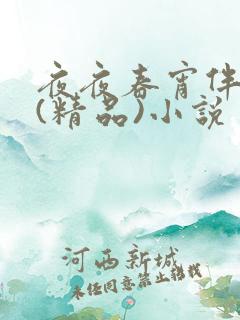 夜夜春宵伴
(精品)小说
河西新城
未经同意禁止转载